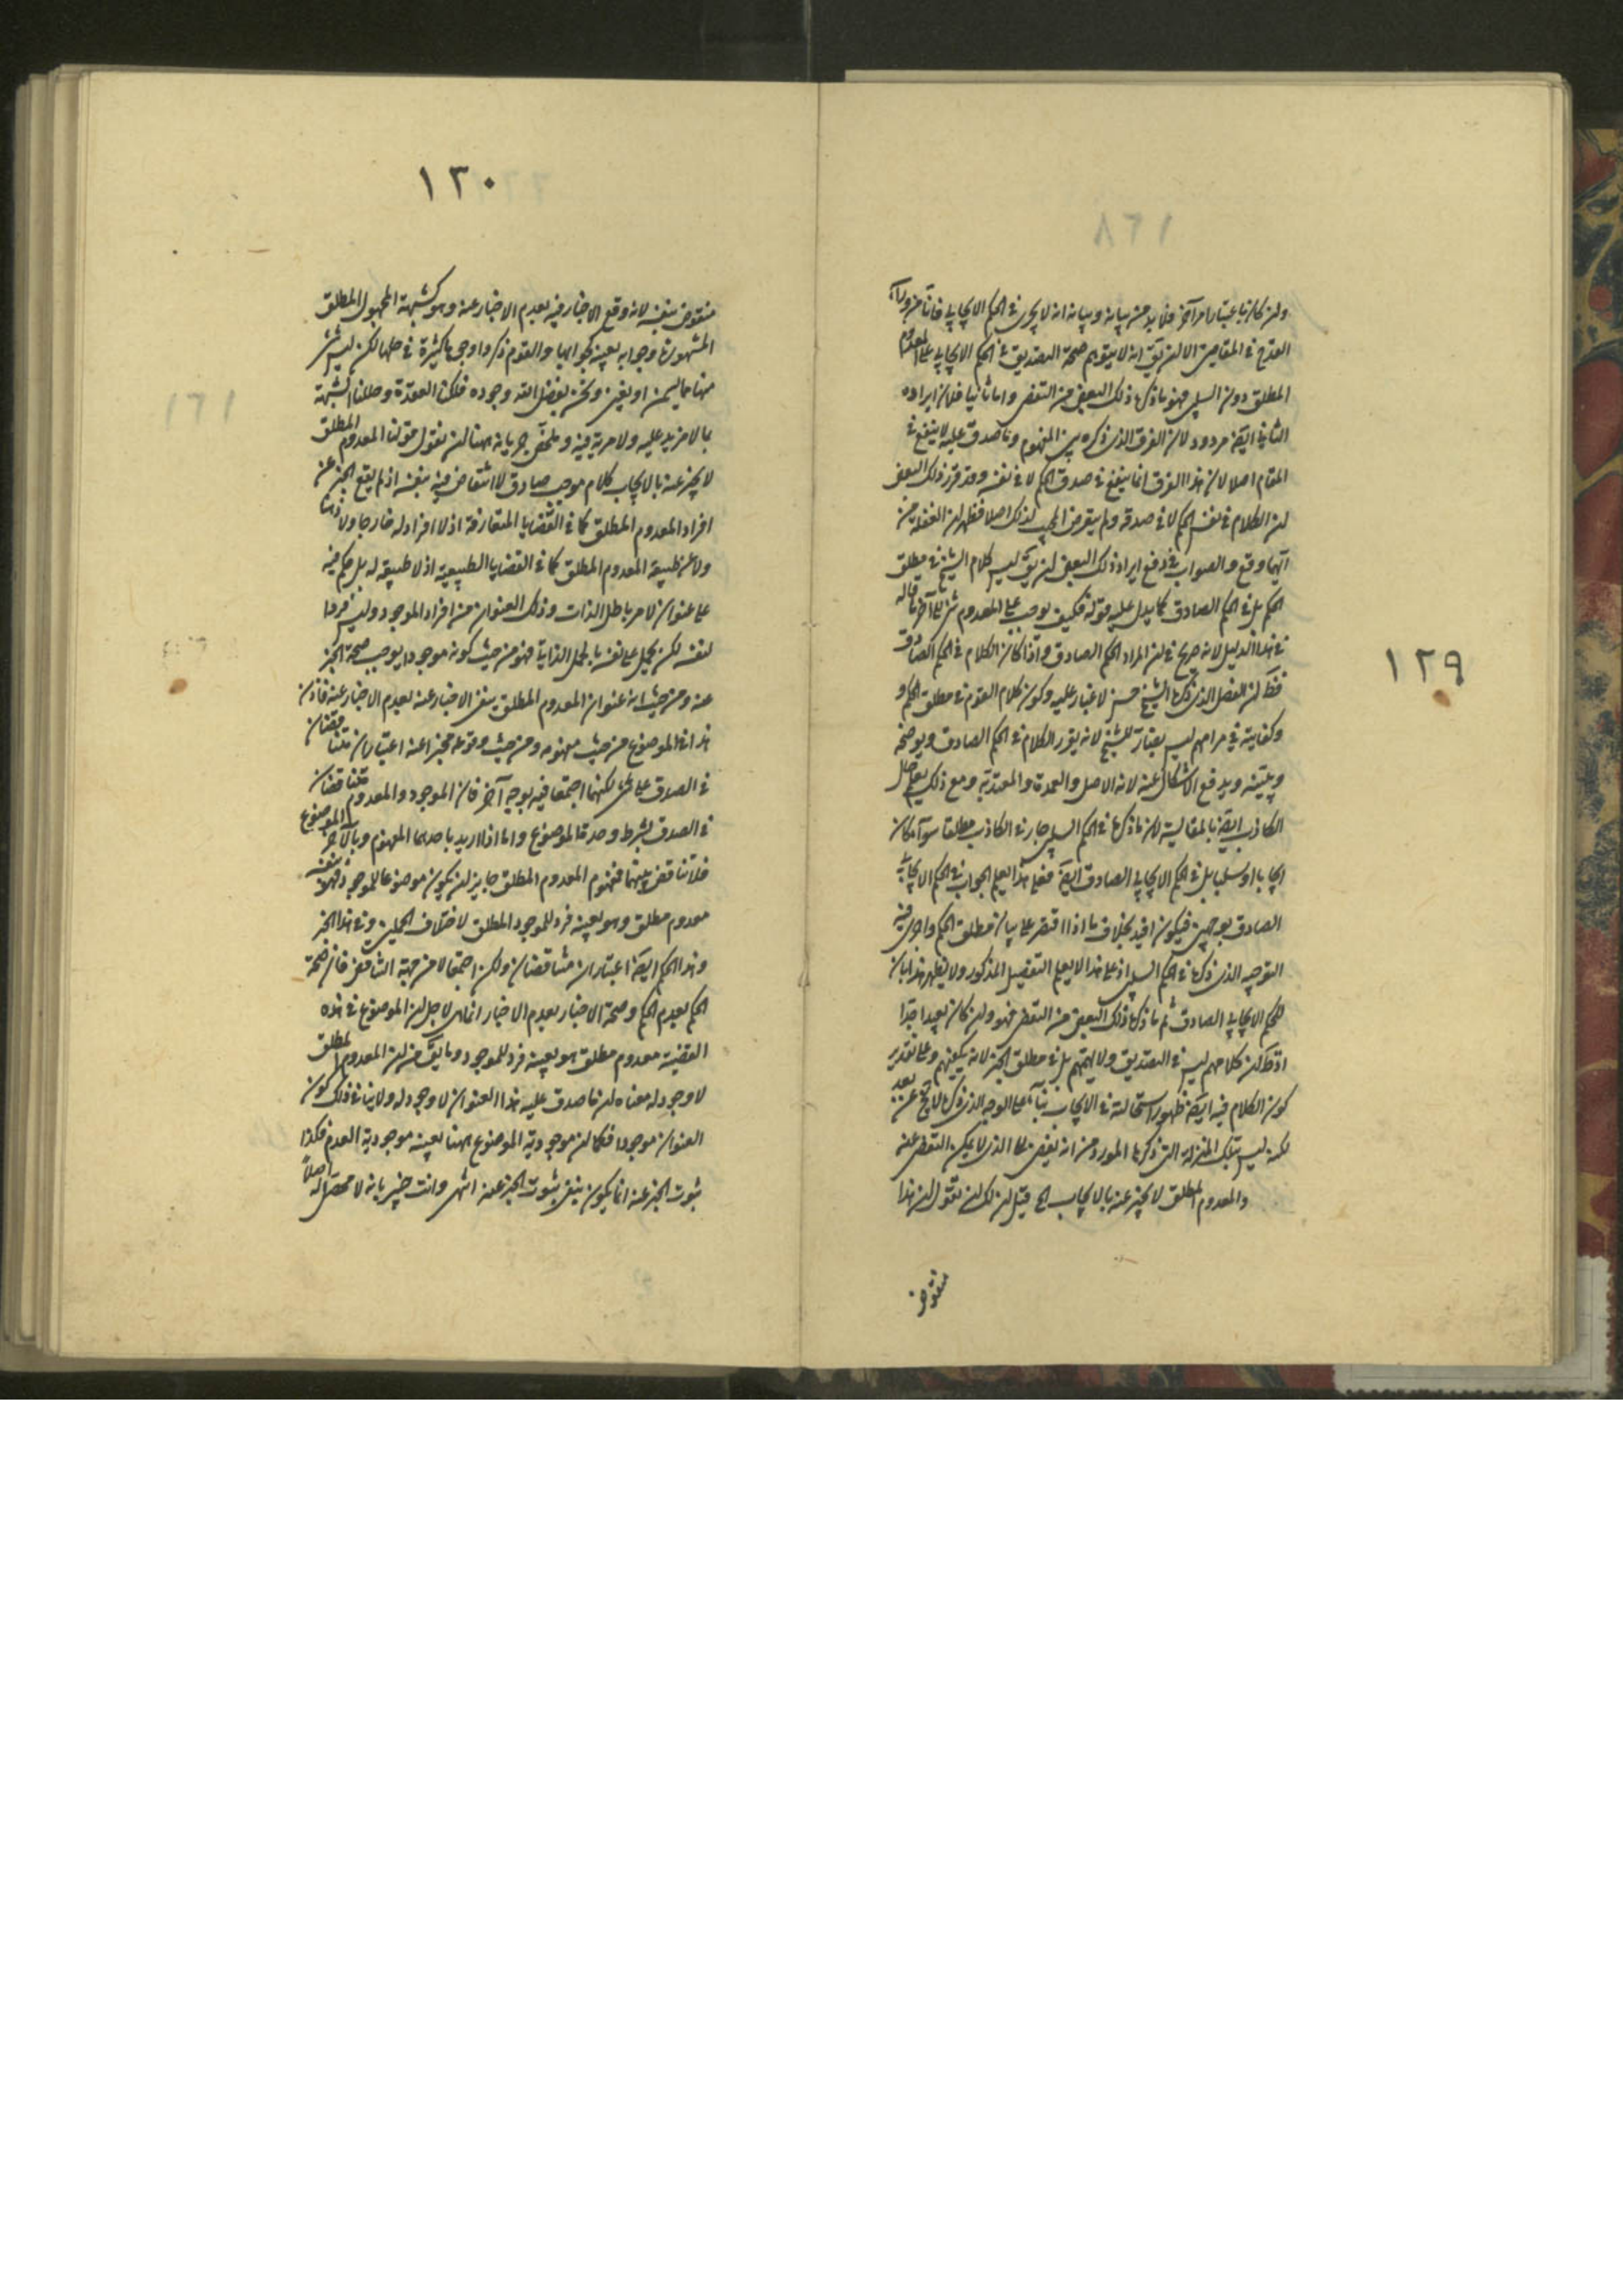 ١٢٩
وان كان باعتبار امر آخر فلا بد من بيانه وبيان انه لا يجرى فى الحكم الايجابى فانا من وراء
القدح فى المقامين الا ان يق انه لا يتوهم صحة التصديق فى الحكم الايجابى على المعدوم
المطلق دون السلبى فهو ما ذكره ذلك البعض من النقض واما ثانيا فلان ايراده
الثانى ايض مردود لان الفرق الذى ذكره بين المفهوم وما صدق عليه لا ينفع فى
المقام اصلا لان هذا الفرق انما ينفع فى صدق الحكم لا فى نفسه وقد قرر ذلك البعض
ان الكلام فى نفس الحكم لا فى صدقه ولم يتعرض المجيب لذلك اصلا فظهر ان الغفلة من
ايهما وقع والصواب فى دفع ايراد ذلك البعض ان يق ليس كلام الشيخ فى مطلق
الحكم بل فى الحكم الصادق كما يدل عليه قوله فكيف يوجب على المعدوم شئ الى آخر ما قاله
فى هذا الدليل لانه صريح فى ان المراد الحكم الصادق واذا كان الكلام فى الحكم الصادق
فظ ان الفصل الذى ذكره الشيخ حسن لا غبار عليه وكون كلام القوم فى مطلق الحكم و
وكفايته فى مرامهم ليس بضار للشيخ لانه يقرر الكلام فى الحكم الصادق ويوضحه
ويبينه ويدفع الاشكال عنه لانه الاصل والعمدة والمعتد به ومع ذلك يعلم حال
الكاذب ايض بالمقايسة لان ما ذكره فى الحكم السلبى جار فى الكاذب مطلقا سواء كان
ايجابا او سلبا بل فى الحكم الايجابى الصادق ايض فعلى هذا يعلم الجواب فى الحكم الايجابى
الصادق بوجهين فيكون افيد بخلاف ما اذا اقتصر على بيان مطلق الحكم واجرى فيه
التوجيه الذى ذكره فى الحكم السلبى اذ على هذا لا يعلم التفصيل المذكور ولا يظهر هذا بان
حكم الايجابى الصادق ثم ما ذكره ذلك البعض من النقض فهو وان كان بعيدا جدا
اذ ظ ان كلامهم ليس فى التصديق ولا يهمهم بل فى مطلق الخبر لانه يكفيهم وعلى تقدير
كون الكلام فيه ايض ظهور استحالته فى الايجاب بناء على الوجه الذى ذكره لا يخ عن بعد
لكنه ليس بتلك المنزلة التى ذكرها المورد من انه نقض على الذى لا يمكن النقض عنه
والمعدوم المطلق لا يخبر عنه بالايجاب الخ قيل ان لك ان تقول ان هذا
منقوض
١٣٠
منقوض بنفسه لانه وقع الاخبار فيه بعدم الاخبار عنه وهو كشبهة المجهول المطلق
المشهورة وجوابه بعينه كجوابها والقوم ذكروا وجوها كثيرة فى حلها لكن ليس شئ
منها مما يسمن او يغنى ونحن بفضل الله وجوده فككنا العقدة وحللنا الشبهة
بما لا مزيد عليه ولا مرية فيه وملخص جريانه ههنا ان نقول قولنا المعدوم المطلق
لا يخبر عنه بالايجاب كلام موجب صادق لا انتقاض فيه بنفسه اذ لم يقع الخبر عن
افراد المعدوم المطلق كما فى القضايا المتعارفة اذ لا افراد له خارجا ولا ذهنا
ولا عن طبيعة المعدوم المطلق كما فى القضايا الطبيعية اذ لا طبيعة له بل حكم فيه
على عنوان لامر باطل الذات وذلك العنوان من افراد الموجود وليس فردا
لنفسه لكن يحمل على نفسه بالحمل الذاتى فهو من حيث كونه موجودا يوجب صحة الخبر
عنه ومن حيث انه عنوان المعدوم المطلق ينفى الاخبار عنه بعدم الاخبار عنه فاذن
هذا الموضوع من حيث مفهومه ومن حيث وقوعه مخبرا عنه اعتباران متناقضان
فى الصدق على شئ لكنهما اجتمعا فيه بوجه آخر فان الموجود والمعدوم متناقضان
فى الصدق بشرط وحدة الموضوع واما اذا اريد باحدهما المفهوم وبالآخر الموضوع
فلا تناقض بينهما فمفهوم المعدوم المطلق جايز ان يكون موضوعا للموجود فهو نفسه
معدوم مطلق وهو بعينه فرد للموجود المطلق لاختلاف الحملين وفى هذا الخبر
وهذا الحكم ايض اعتباران متناقضان ولكن اجتمعا لا من جهة التناقض فان صحة
الحكم بعدم الحكم وصحة الاخبار بعدم الاخبار انما هى لاجل ان الموضوع فى هذه
القضية معدوم مطلق هو بعينه فرد للموجود وما يق من ان المعدوم المطلق
لا وجود له معناه ان ما صدق عليه هذا العنوان لا وجود له ولا ينافى ذلك كون
العنوان موجودا فكما ان موجودية الموضوع ههنا بعينه موجودية العدم فكذا
ثبوت الخبر عنه انما يكون بنفى ثبوت الخبر عنه انتهى وانت خبير بانه لا محصل له اصلا